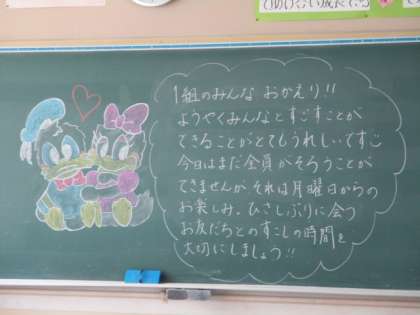 1組のみんな おかえり!!
ようやくみんなとすごすことが
できることがとてもうれしいですご
今日はまだ全員がそろうことが
できませんが それは月曜日からの
お楽しみ。ひさしぶりに会う
お友だちとのすこしの時間を
大切にしましょう!!